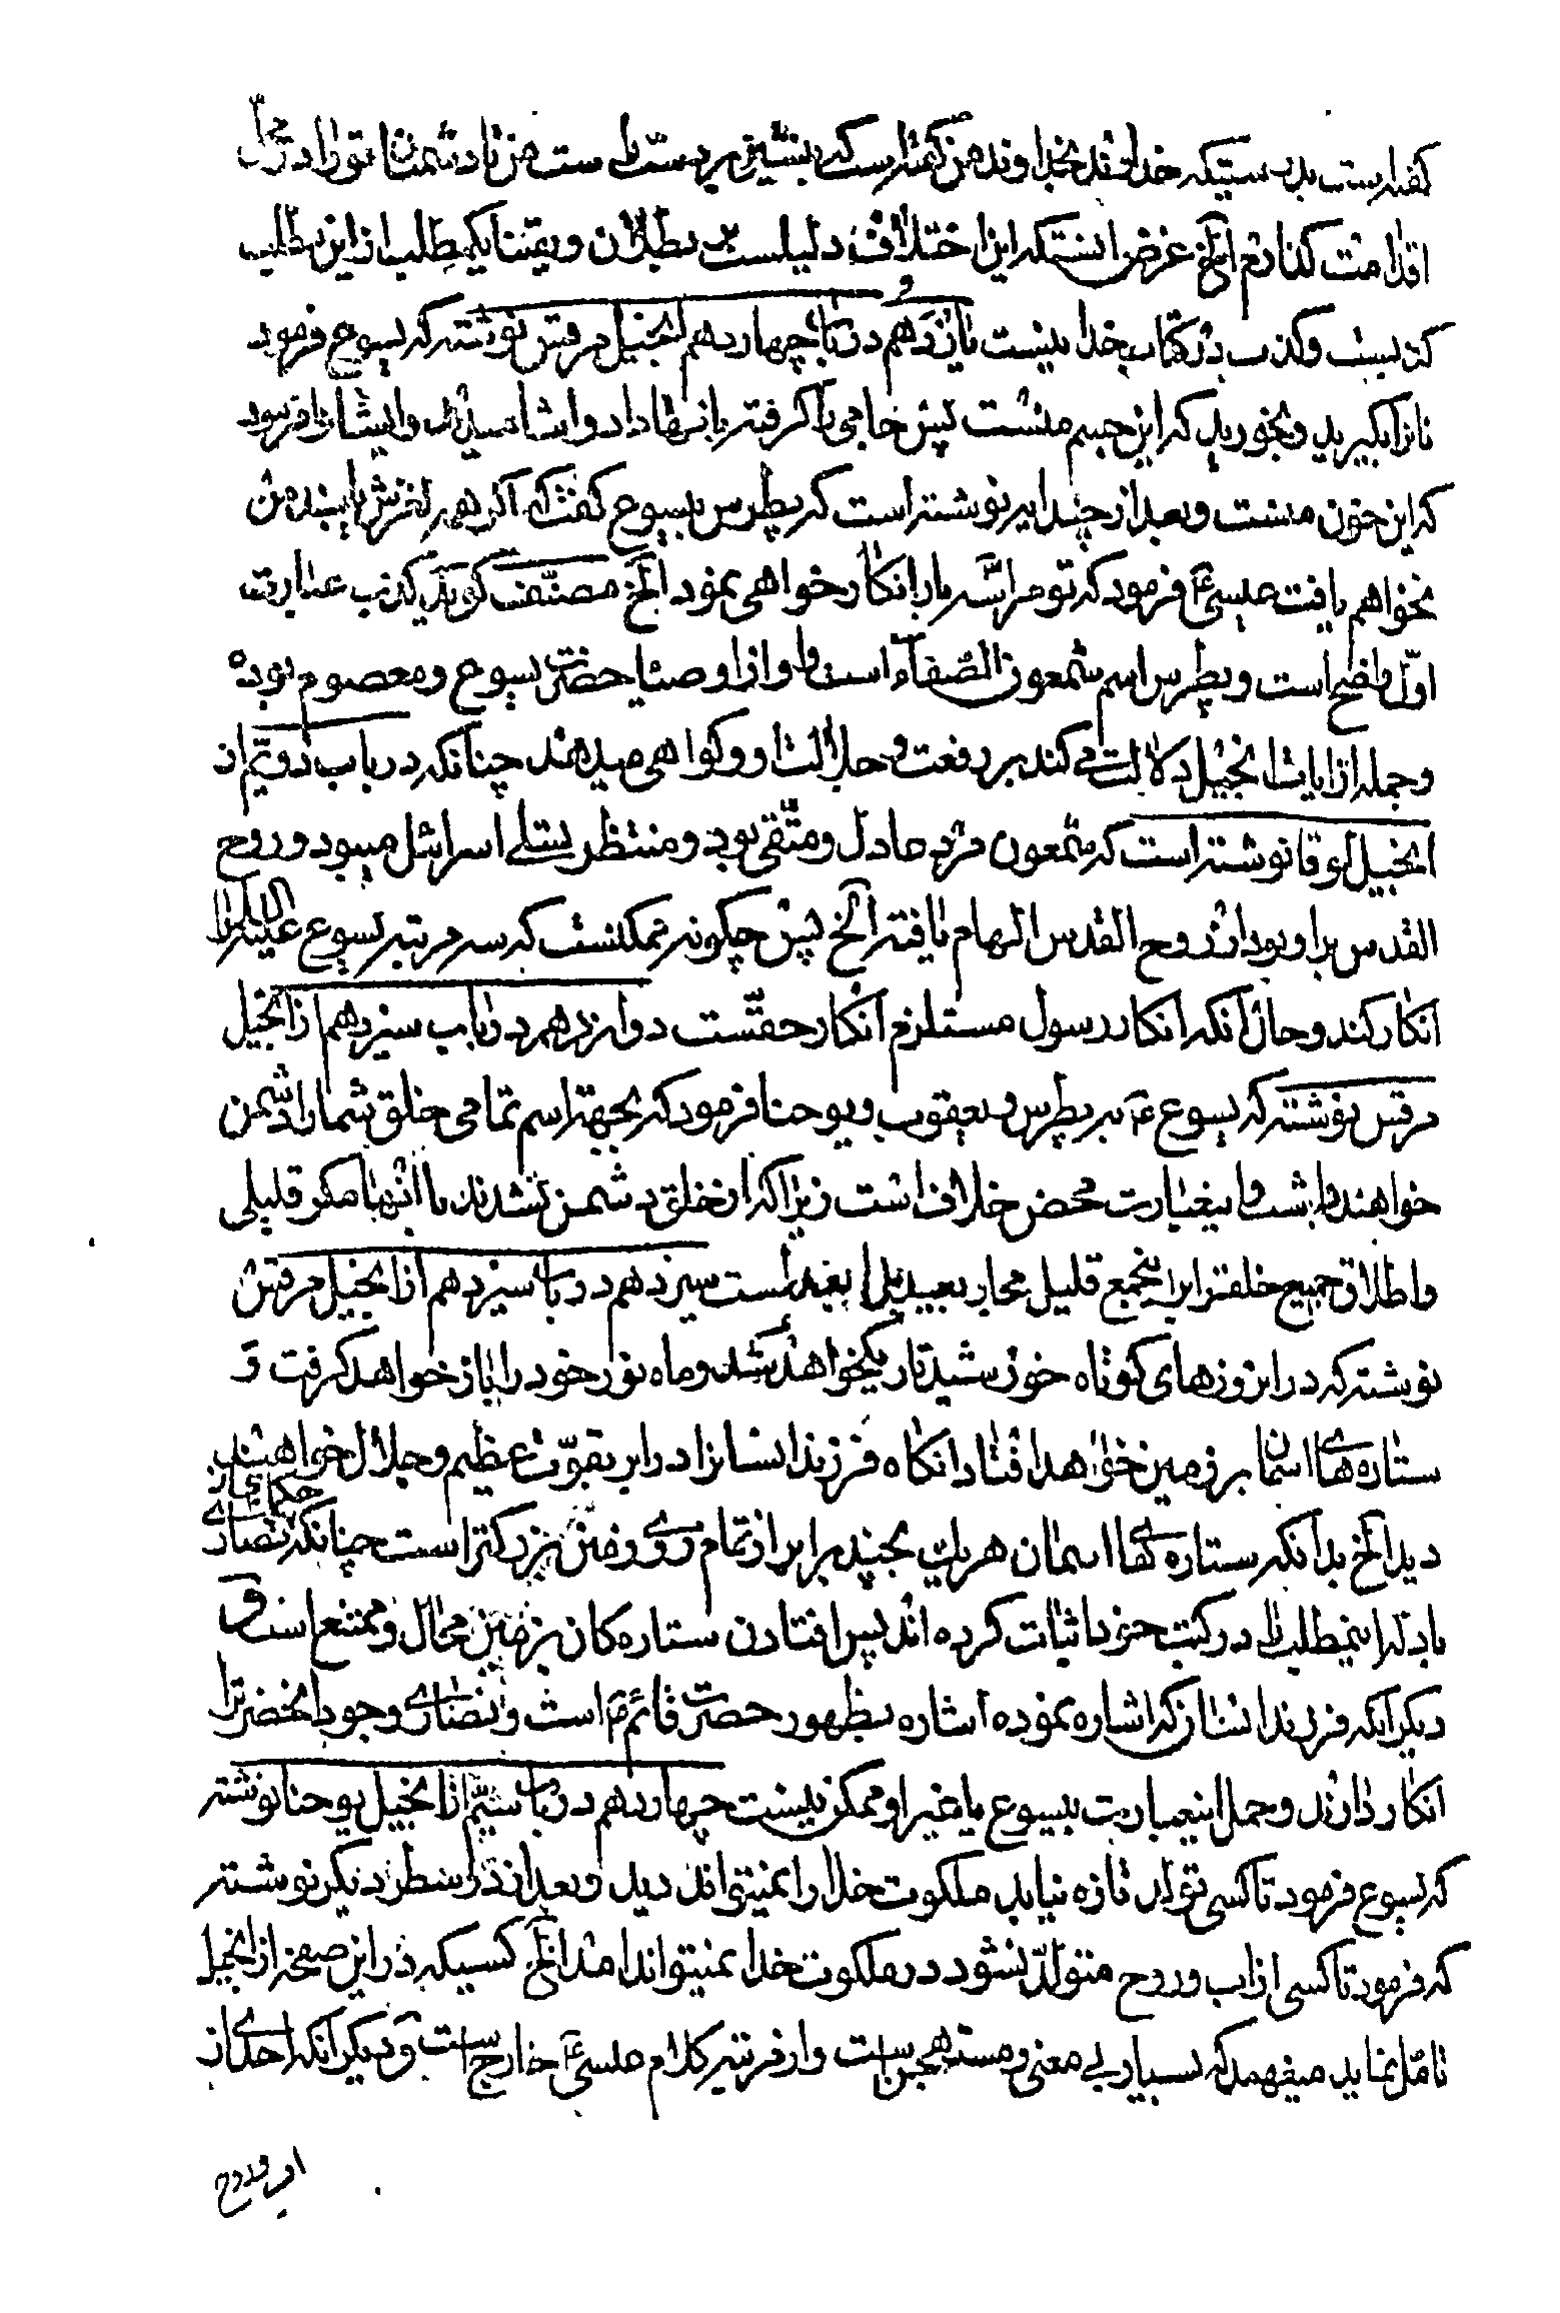 گفته است بدرستیکه خداوند بخداوند من گفته است که بنشین بر دست راست من تا دشمنان تو را در محل
اقدامت گذارم الخ غرض اینستکه این اختلاف دلیلست بر بطلان و یقینا یکمطلب از این مطالب
کذبست و کذب در کتاب خدا نیست یازدهم در باب چهاردهم انجیل مرقس نوشته که یسوع فرمود
نانرا بگیرید و بخورید که این جسم منست پس جامی را گرفته بانها داد و اشامیدند و ایشانرا فرمود
که این خون منست و بعد از چند ایه نوشته است که پطرس بیسوع گفت که اگر همه لغزش یابند من
نخواهم یافت عیسی ع فرمود که تو مرا سه بار انکار خواهی نمود الخ مصنف گوید کذب عبارت
اول واضح است و پطرس اسم شمعون الصفاء است و او از اوصیا حضرت یسوع و معصوم بوده
و جمله از ایات انجیل دلالت می کند بر رفعت و جلالت او و گواهی میدهند چنانکه در باب دویم از
انجیل لوقا نوشته است که شمعون مرد عادل و متقی بود و منتظر تسلی اسرائیل میبود و روح
القدس بر او بود از روح القدس الهام یافته الخ پس چگونه ممکنست که سه مرتبه یسوع علیه السلام را
انکار کند و حال انکه انکار رسول مستلزم انکار حقست دوازدهم در باب سیزدهم از انجیل
مرقس نوشته که یسوع ع به پطرس و یعقوب و یوحنا فرمود که بجهة اسم تمامی خلق شما را دشمن
خواهند داشت و اینعبارت محض خلاف است زیرا که از خلق دشمن نشدند با انها مگر قلیلی
و اطلاق جمیع خلق بر این جمع قلیل مجاز بعید است سیزدهم در باب سیزدهم از انجیل مرقس
نوشته که در انروزهای کوتاه خورشید تاریک خواهد شد و ماه نور خود را باز خواهد گرفت و
ستاره های اسمان بر زمین خواهد افتاد انگاه فرزند انسانرا در ابر بقوت عظیم و جلال خواهند
دید الخ بدانکه ستاره های اسمان هر یک بچند برابر از تمام روی زمین بزرگتر است چنانکه حکمای از نصاری
با دله اینمطلب را در کتب خود اثبات کرده اند پس افتادن ستاره گان بزمین محال و ممتنع است و
دیگر انکه فرزند انسان که اشاره نموده اشاره بظهور حضرت قائم ع است و نصاری وجود انحضرت را
انکار دارند و حمل اینعبارت بیسوع یا غیر او ممکن نیست چهاردهم در باب سیم از انجیل یوحنا نوشته
که یسوع فرمود تا کسی تولد تازه نیابد ملکوت خدا را نمیتواند دید و بعد از دو سطر دیگر نوشته
که فرمود تا کسی از اب و روح متولد نشود در ملکوت خدا نمیتواند امد الخ کسیکه در این صفحه از انجیل
تامل نماید میفهمد که بسیار بی معنی و مستهجن است و از فرتیه کلام عیسی ع خارج است و دیگر انکه احدی از
اب و روح